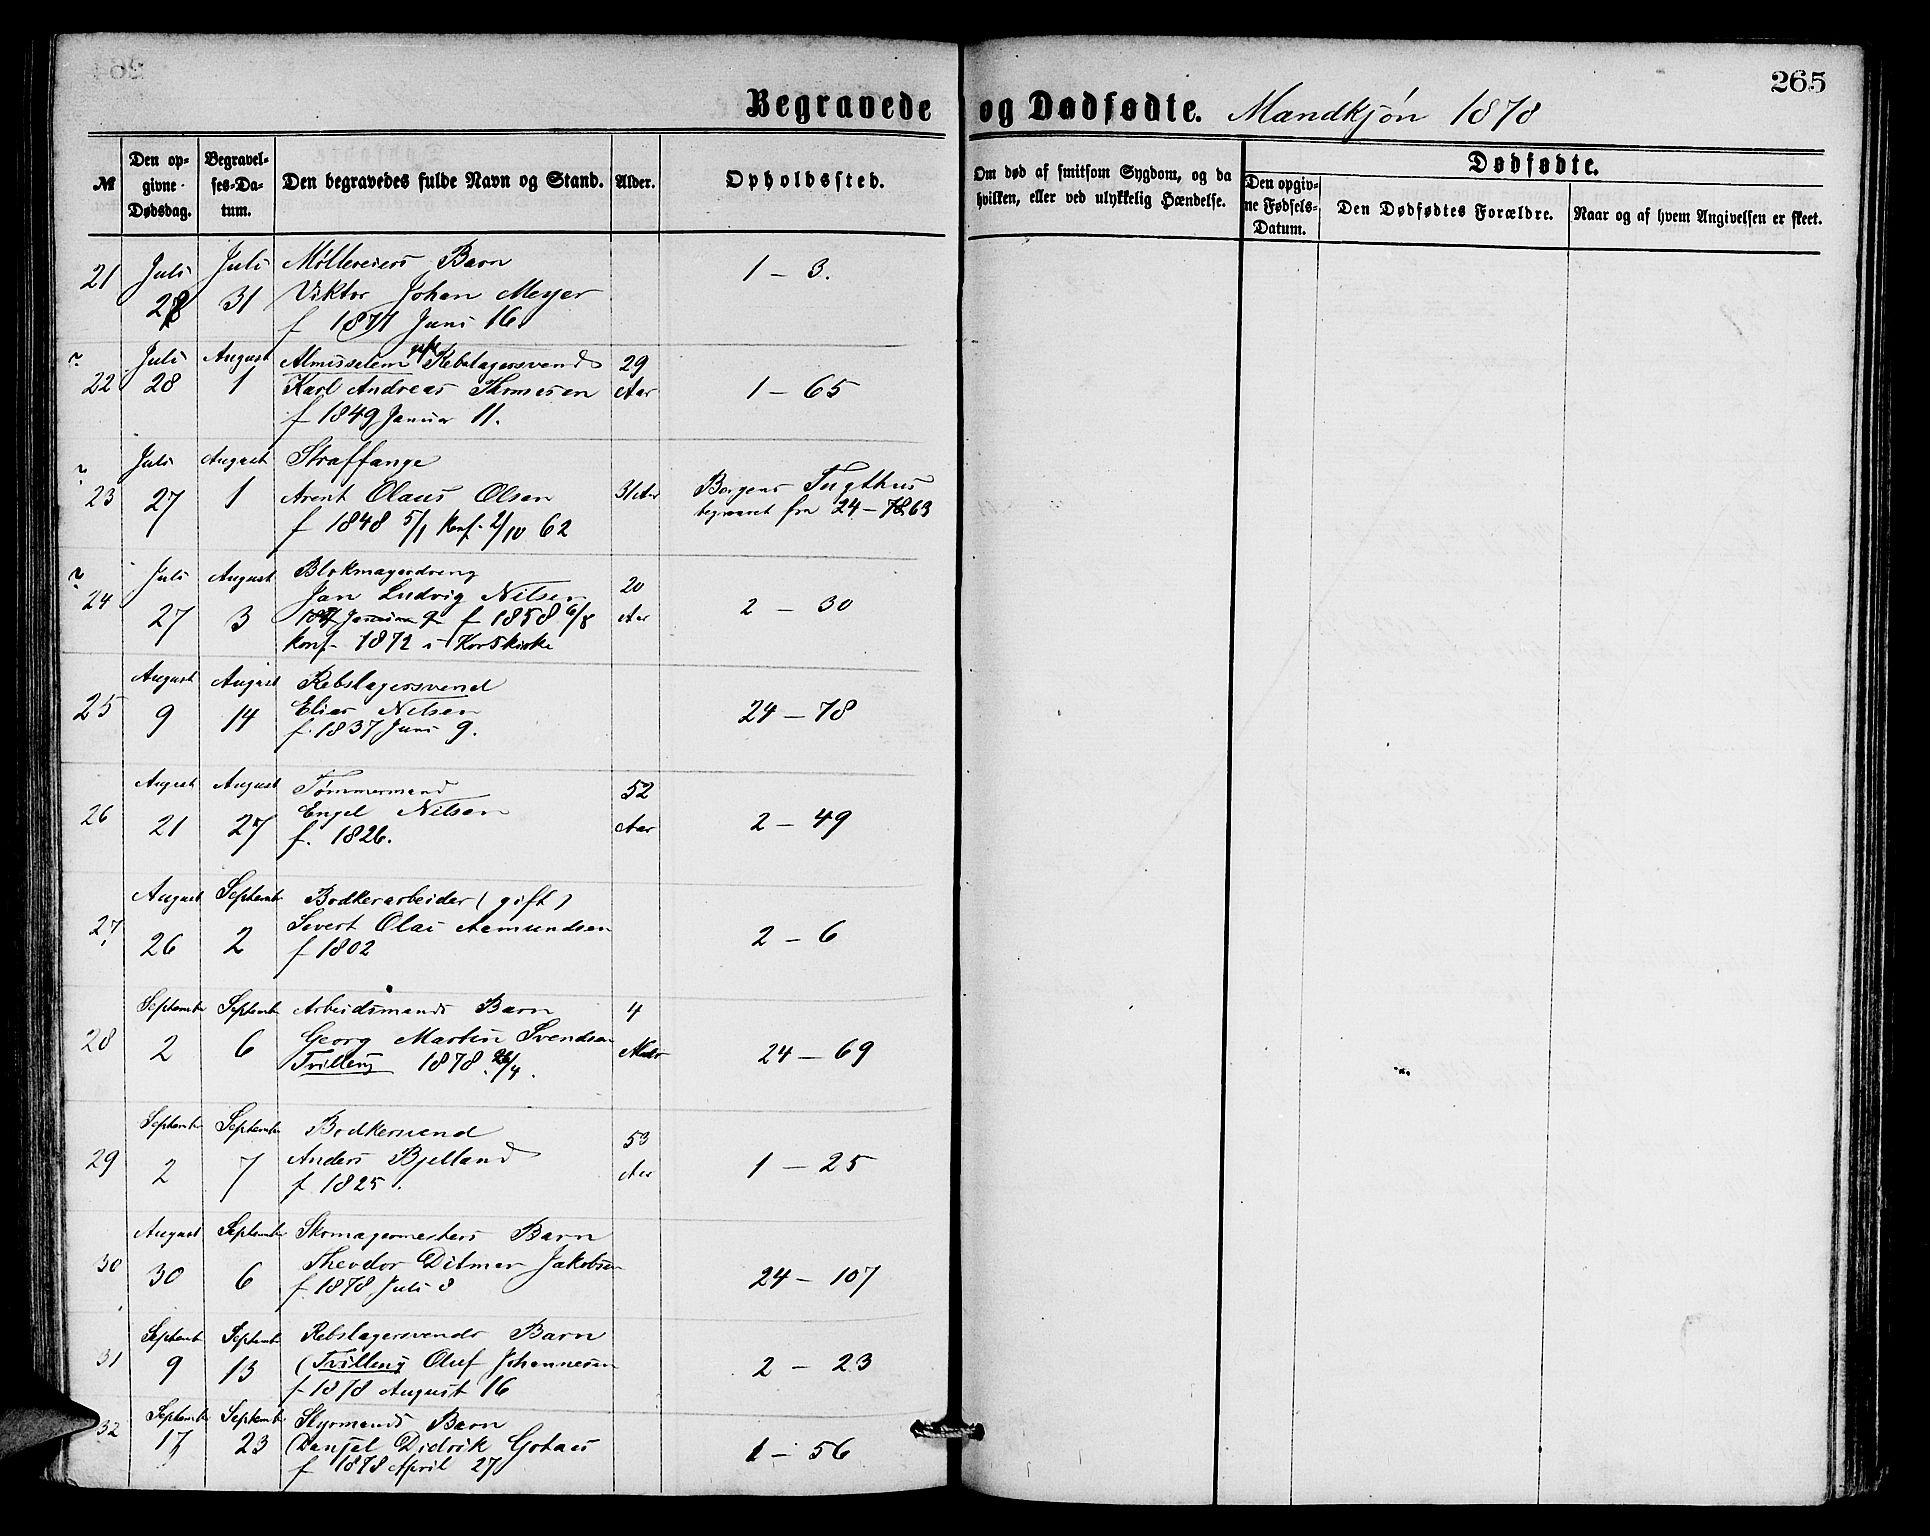 265
Begravede og Dødfødte. Mandkjøn 1878
№ Den opgivne Dødsdag. Begravelses-Datum. Den begravedes fulde Navn og Stand. Alder. Opholdssted. Om død af smitsom Sygdom, og da hvilken, eller ved ulykkelig Hændelse. Dødfødte.
Den opgivne Fødsels-Datum. Den Dødfødtes Forældre. Naar og af hvem Angivelsen er skeet.
Juli Juli Møllereiers Barn
21 28 31 Viktor Johan Meyer 1 - 3.
f 1877 Juni 16
Juli August Almisselem Rebslagersvend 29
22 28 1 Karl Andreas Thomesen Aar 1 - 65
f 1849 Januar 11.
Juli August Straffange
23 27 1 Arent Olaus Olsen 31 Aar Bergens Tugthus
f 1848 5/1 Konf. 2/10 62 begravet fra 24 - 63
Juli August Blokmagerdreng 20
24 27 3 Jan Ludvig Nilsen Aar 2 - 30
Januar 9 f 1858 6/8
Konf. 1872 i Korskirke
August August Rebslagersvend
25 9 14 Elias Nilsen 24 - 78
f. 1837 Juni 9.
August August Tømmermand 52
26 21 27 Engel Nilsen Aar 2 - 49
f. 1826.
August Septembr Bødkerarbeider (gift)
27 26 2 Sivert Olai Aamundsen 2 - 6
f 1802
Septembr Septembr Arbeidsmands Barn 4
28 2 6 Georg Martin Svendsen Mdr 24 - 69
Tvilling 1878 26/4.
Septembr Septembr Bødkersvend 53
29 2 7 Anders Bjelland Aar 1 - 25
f 1825.
August Septembr Skomagermesters Barn
30 30 6 Theodor Ditmar Jakobsen 24 - 107
f. 1878 Juli 8
Septembr Septembr Rebslagersvends Barn
31 9 13 (Tvilling) Oluf Johannesen 2 - 23
f 1878 August 16
Septembr Septembr Styrmands Barn
32 17 23 Daniel Didrik Gotaas 1 - 56
f 1878 April 27